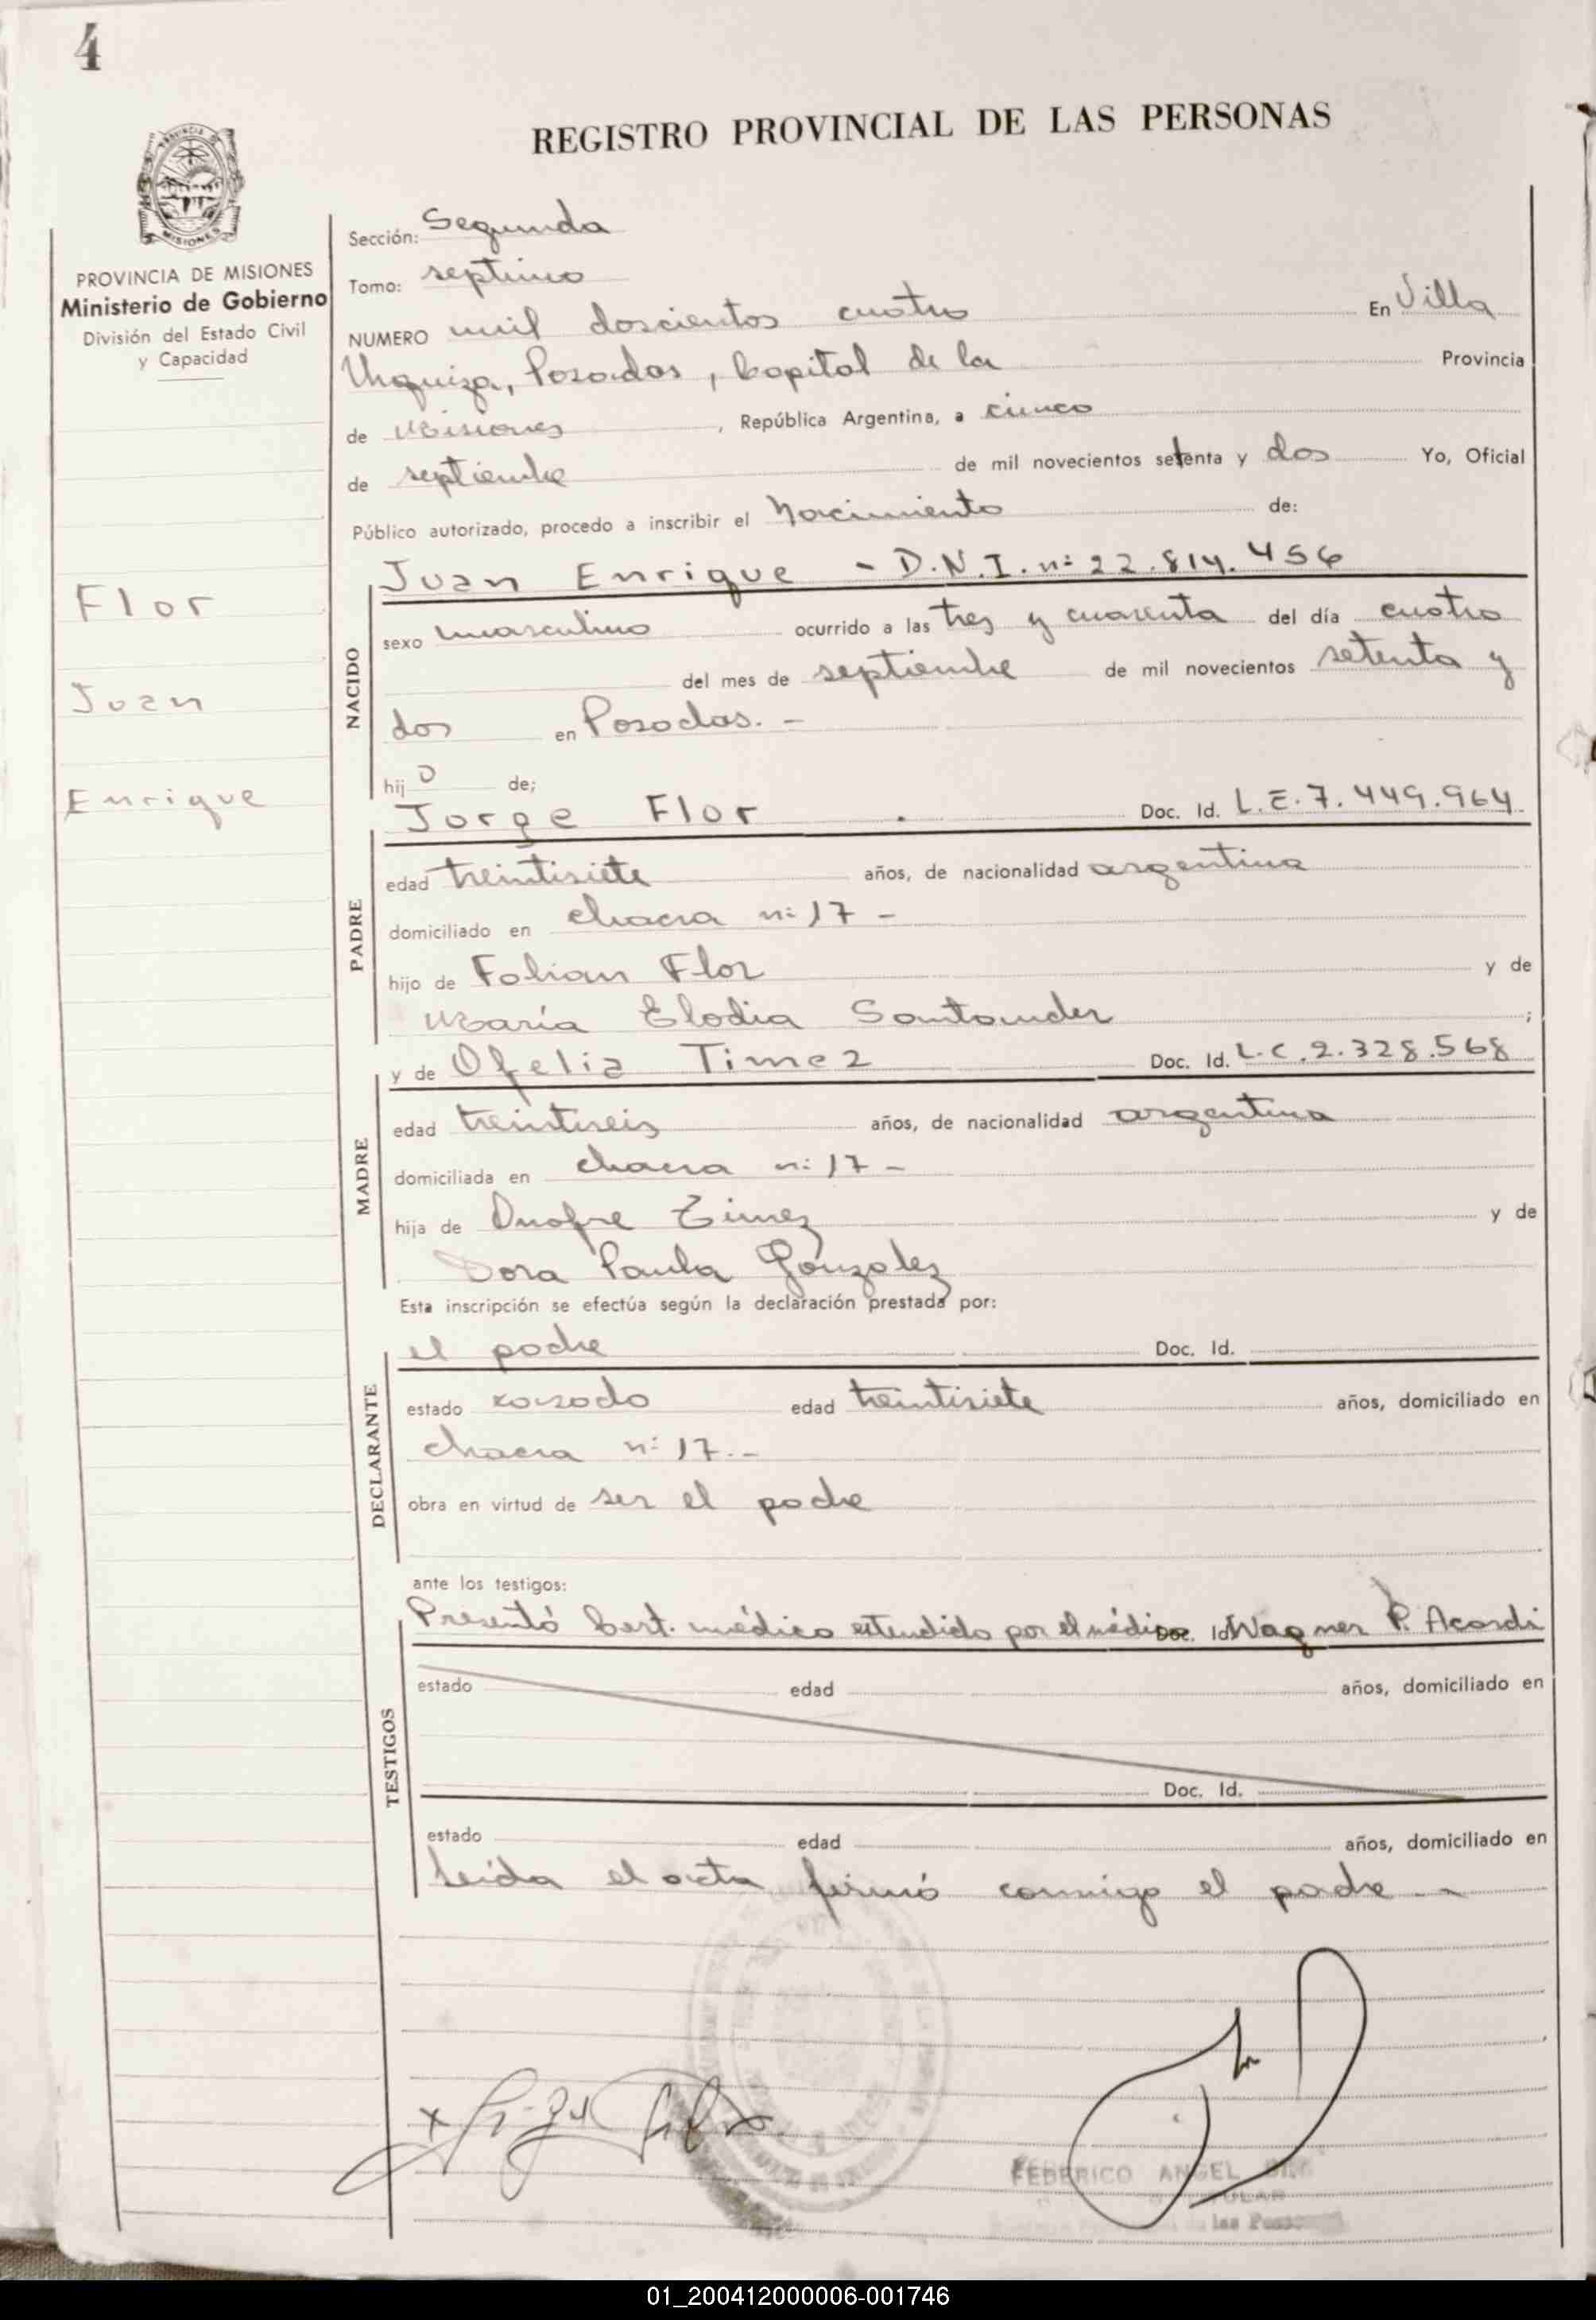 4
REGISTRO PROVINCIAL DE LAS PERSONAS
PROVINCIA DE MISIONES
MISIONES
PROVINCIA DE MISIONES
Ministerio de Gobierno
División del Estado Civil
y Capacidad
Flor
Juan
Enrique
Sección: Segunda
Tomo: septimo
NUMERO mil doscientos cuatro En Villa
Urquiza, Posadas, Capital de la Provincia
de Misiones, República Argentina, a cinco
de septiembre de mil novecientos setenta y dos Yo, Oficial
Público autorizado, procedo a inscribir el Nacimiento de:
NACIDO
Juan Enrique - D.N.I. nº 22.814.456
sexo masculino ocurrido a las tres y cuarenta del día cuatro
del mes de septiembre de mil novecientos setenta y
dos en Posadas. -
hijo de;
PADRE
Jorge Flor Doc. Id. L.E. 7.449.964
edad treintisiete años, de nacionalidad argentina
domiciliado en chacra nº 17 -
hijo de Fabian Flor y de
María Elodia Santander ;
MADRE
y de Ofelia Timez Doc. Id. L.C. 2.328.568
edad treintiseis años, de nacionalidad argentina
domiciliada en chacra nº 17 -
hija de Onofre Timez y de
Dora Paula Gonzalez
Esta inscripción se efectúa según la declaración prestada por:
DECLARANTE
el padre Doc. Id.
estado casado edad treintisiete años, domiciliado en
chacra nº 17. -
obra en virtud de ser el padre
ante los testigos:
TESTIGOS
Presentó Cert. médico extendido por el médico Doc. Id. Wagner P. Acordi
estado edad años, domiciliado en
Doc. Id.
estado edad años, domiciliado en
Leida el acta firmó conmigo el padre. -
x
FEDERICO ANGEL
01_200412000006-001746